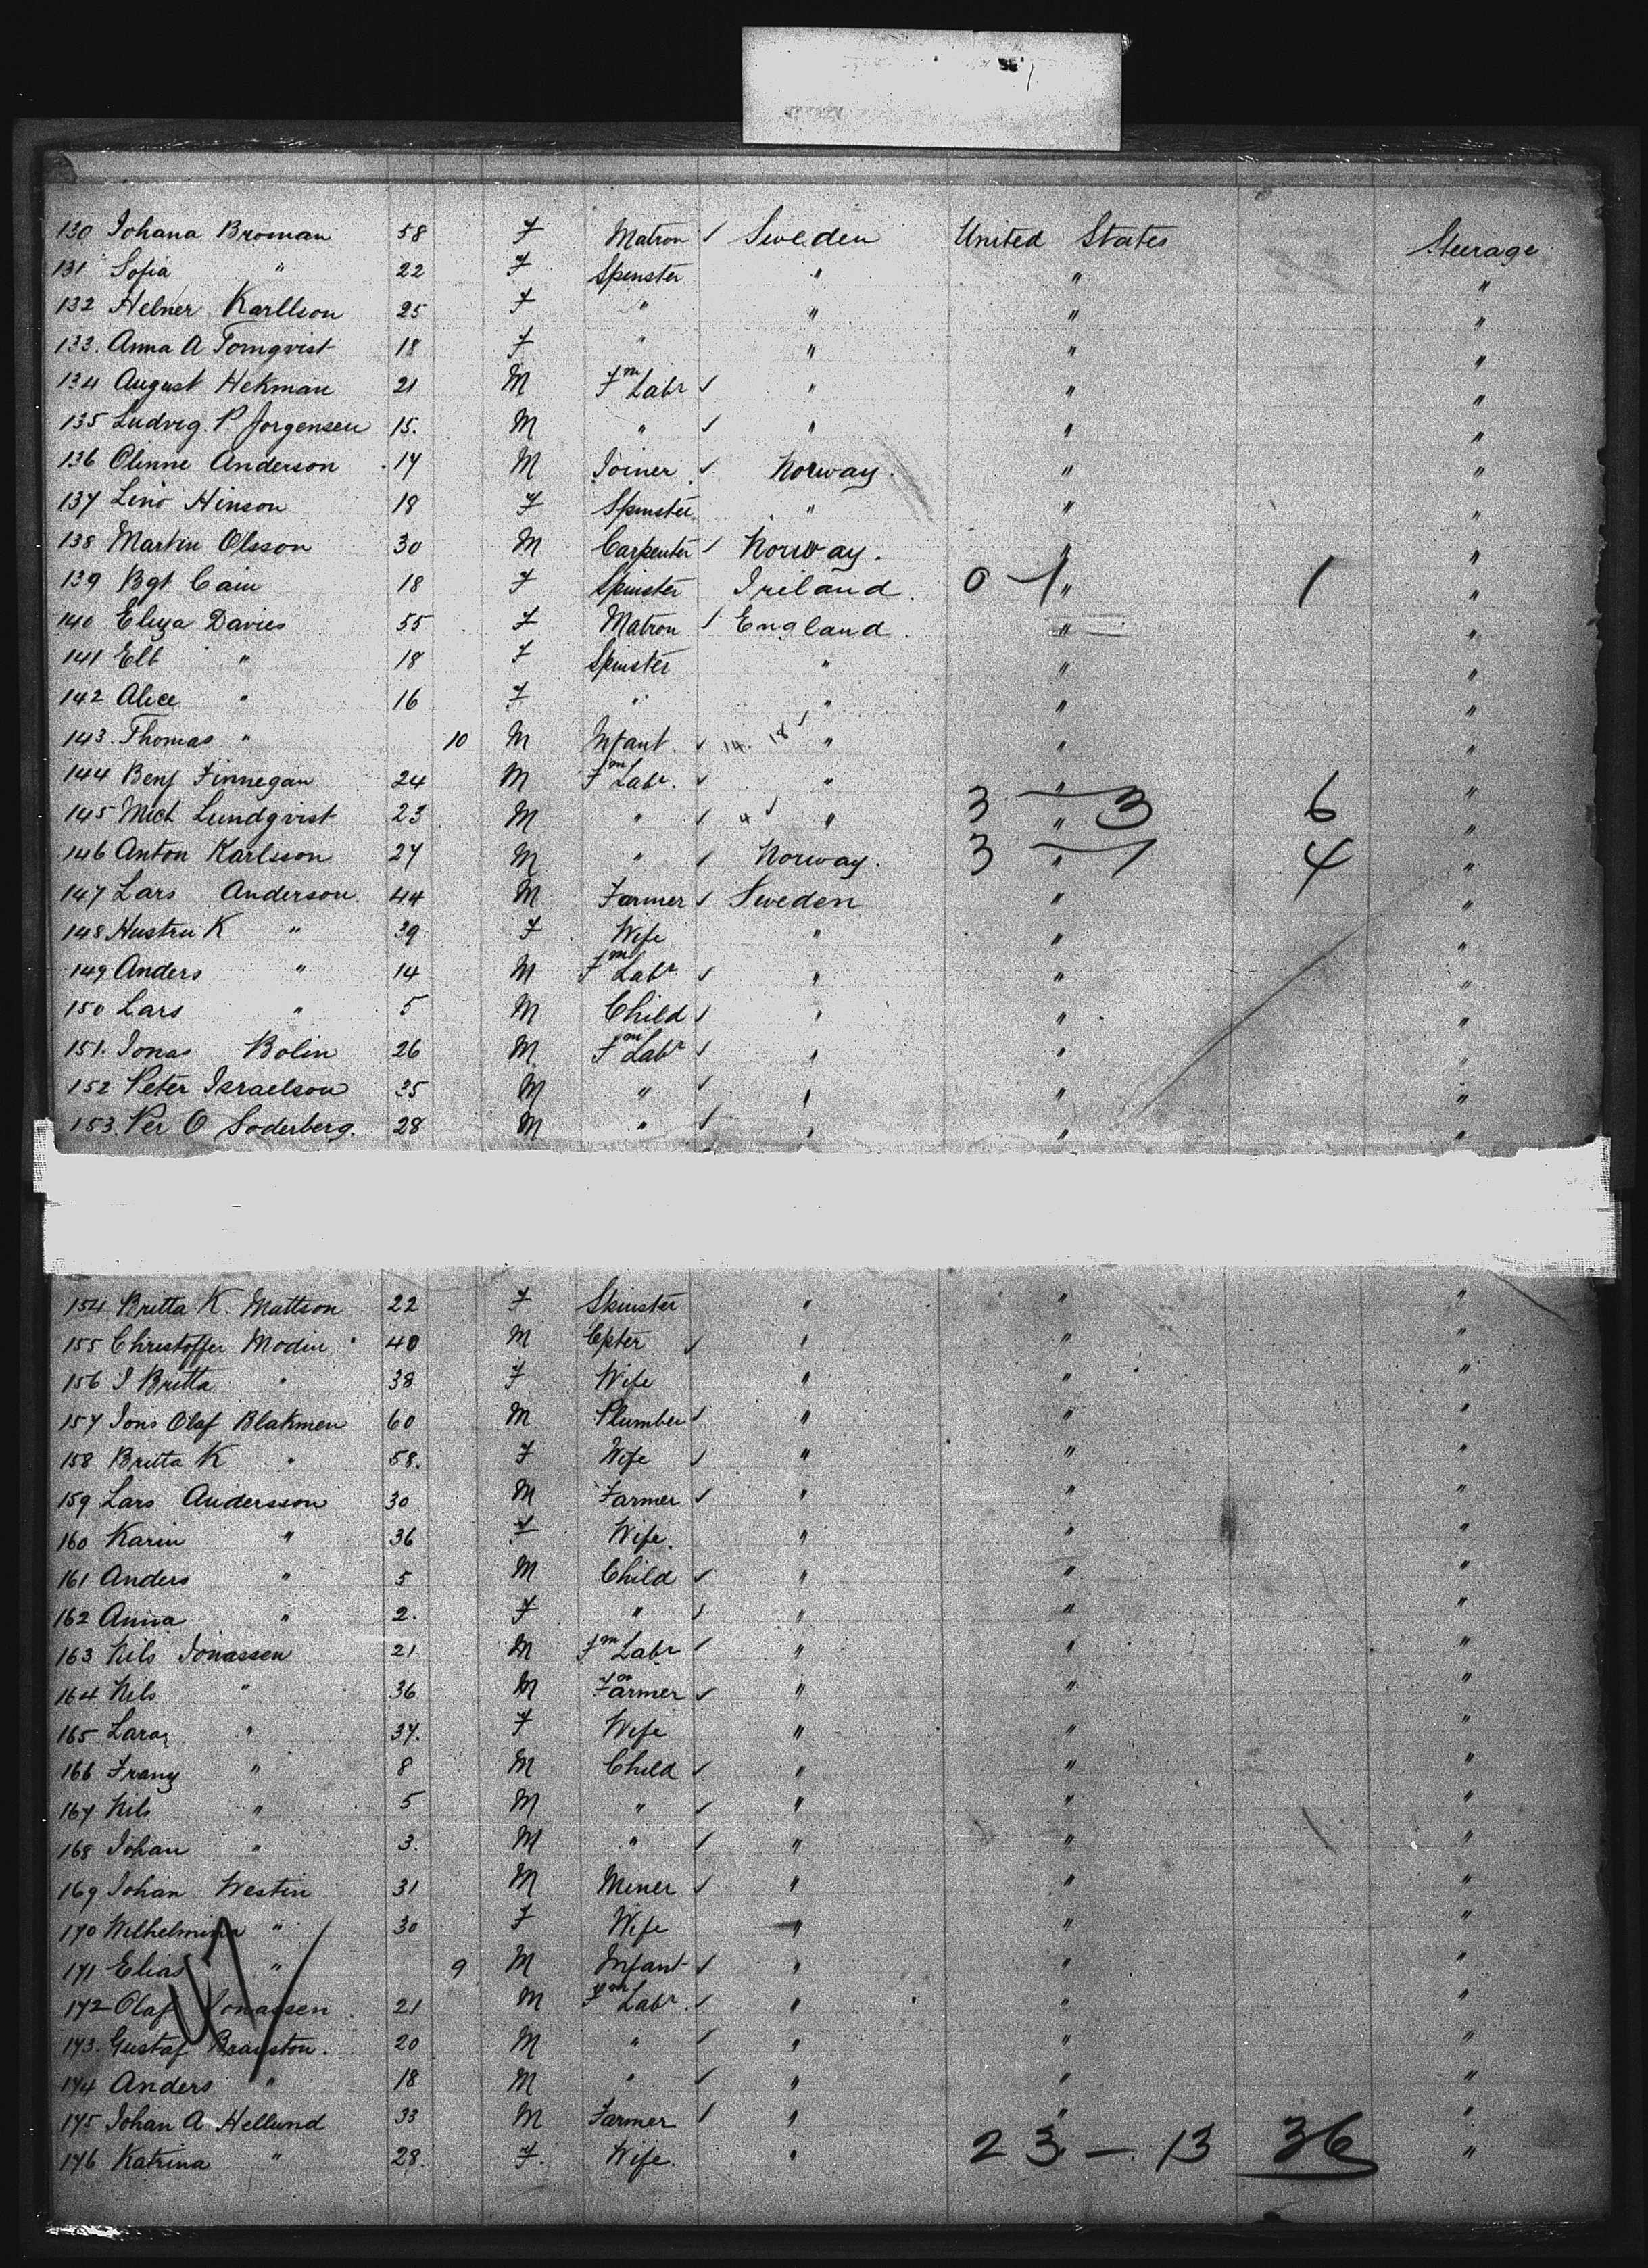 130 Johana Broman 58 F Matron √ Sweden United States Steerage
131 Sofia " 22 F Spinster " " "
132 Helner Karllson 25 F " " " "
133. Anna A Tornqvist 18 F " " " "
134 August Hekman 21 M Fm Labr √ " " "
135 Ludvig. P. Jorgensen 15. M " √ " " "
136 Olinne Anderson 17 M Joiner √ Norway. " "
137 Lino Hinson 18 F Spinster " " "
138 Martin Olsson 30 M Carpenter √ Norway. " "
139 Bgt Cain 18 F Spinster Ireland. 0 - 1 " 1 "
140 Eliza Davies 55 F Matron √ England. " "
141 Elt " 18 F Spinster " " "
142 Alice " 16 F " " " "
143. Thomas " 10 M Infant. √ 14. 18 √ " " "
144 Benj Finnegan 24 M Fm Labr. √ " " "
145 Mich Lundqvist 23 M " √ 4 √ " 3 - 3 " 6 "
146 Anton Karlsson 27 M " √ Norway. 3 - 1 " 4 "
147 Lars Anderson 44 M Farmer √ Sweden " "
148 Hustru K " 39 F Wife " " "
149 Anders " 14 M Fm Labr √ " " "
150 Lars " 5 M Child √ " " "
151. Jonas Bolin 26 M Fm Labr √ " " "
152 Peter Israelson 35 M " √ " " "
153. Per O Soderberg. 28 M " √ " " "
154 Britta K. Mattson 22 F Spinster " " "
155 Christoffer Modin 40 M Cpter √ " " "
156 I Britta " 38 F Wife " " "
157 Jons Olof Blakmen 60 M Plumber √ " " "
158 Britta K " 58. F Wife √ " " "
159 Lars Andersson 30 M Farmer √ " " "
160 Karin " 36 F Wife. " " "
161 Anders " 5 M Child √ " " "
162 Anna " 2. F " √ " " "
163 Nils Jonassen 21 M Fm Labr √ " " "
164 Nils " 36 M Farmer √ " " "
165 " 37. F Wife " " "
166 Franz " 8 M Child √ " " "
167 Nils " 5 M " √ " " "
168 Johan " 3. M " √ " " "
169 Johan Westin 31 M Miner √ " " "
170 Wilhelmina " 30 F Wife " " "
171 Elias " 9 M Infant √ " " "
172 Olaf Jonassen 21 M Fm Labr. √ " " "
173. Gustaf 20 M " √ " " "
174 Anders " 18 M " √ " " "
175 Johan A Hellund 33 M Farmer √ " " "
176 Katrina " 28. F. Wife. " 23 - 13 36 "